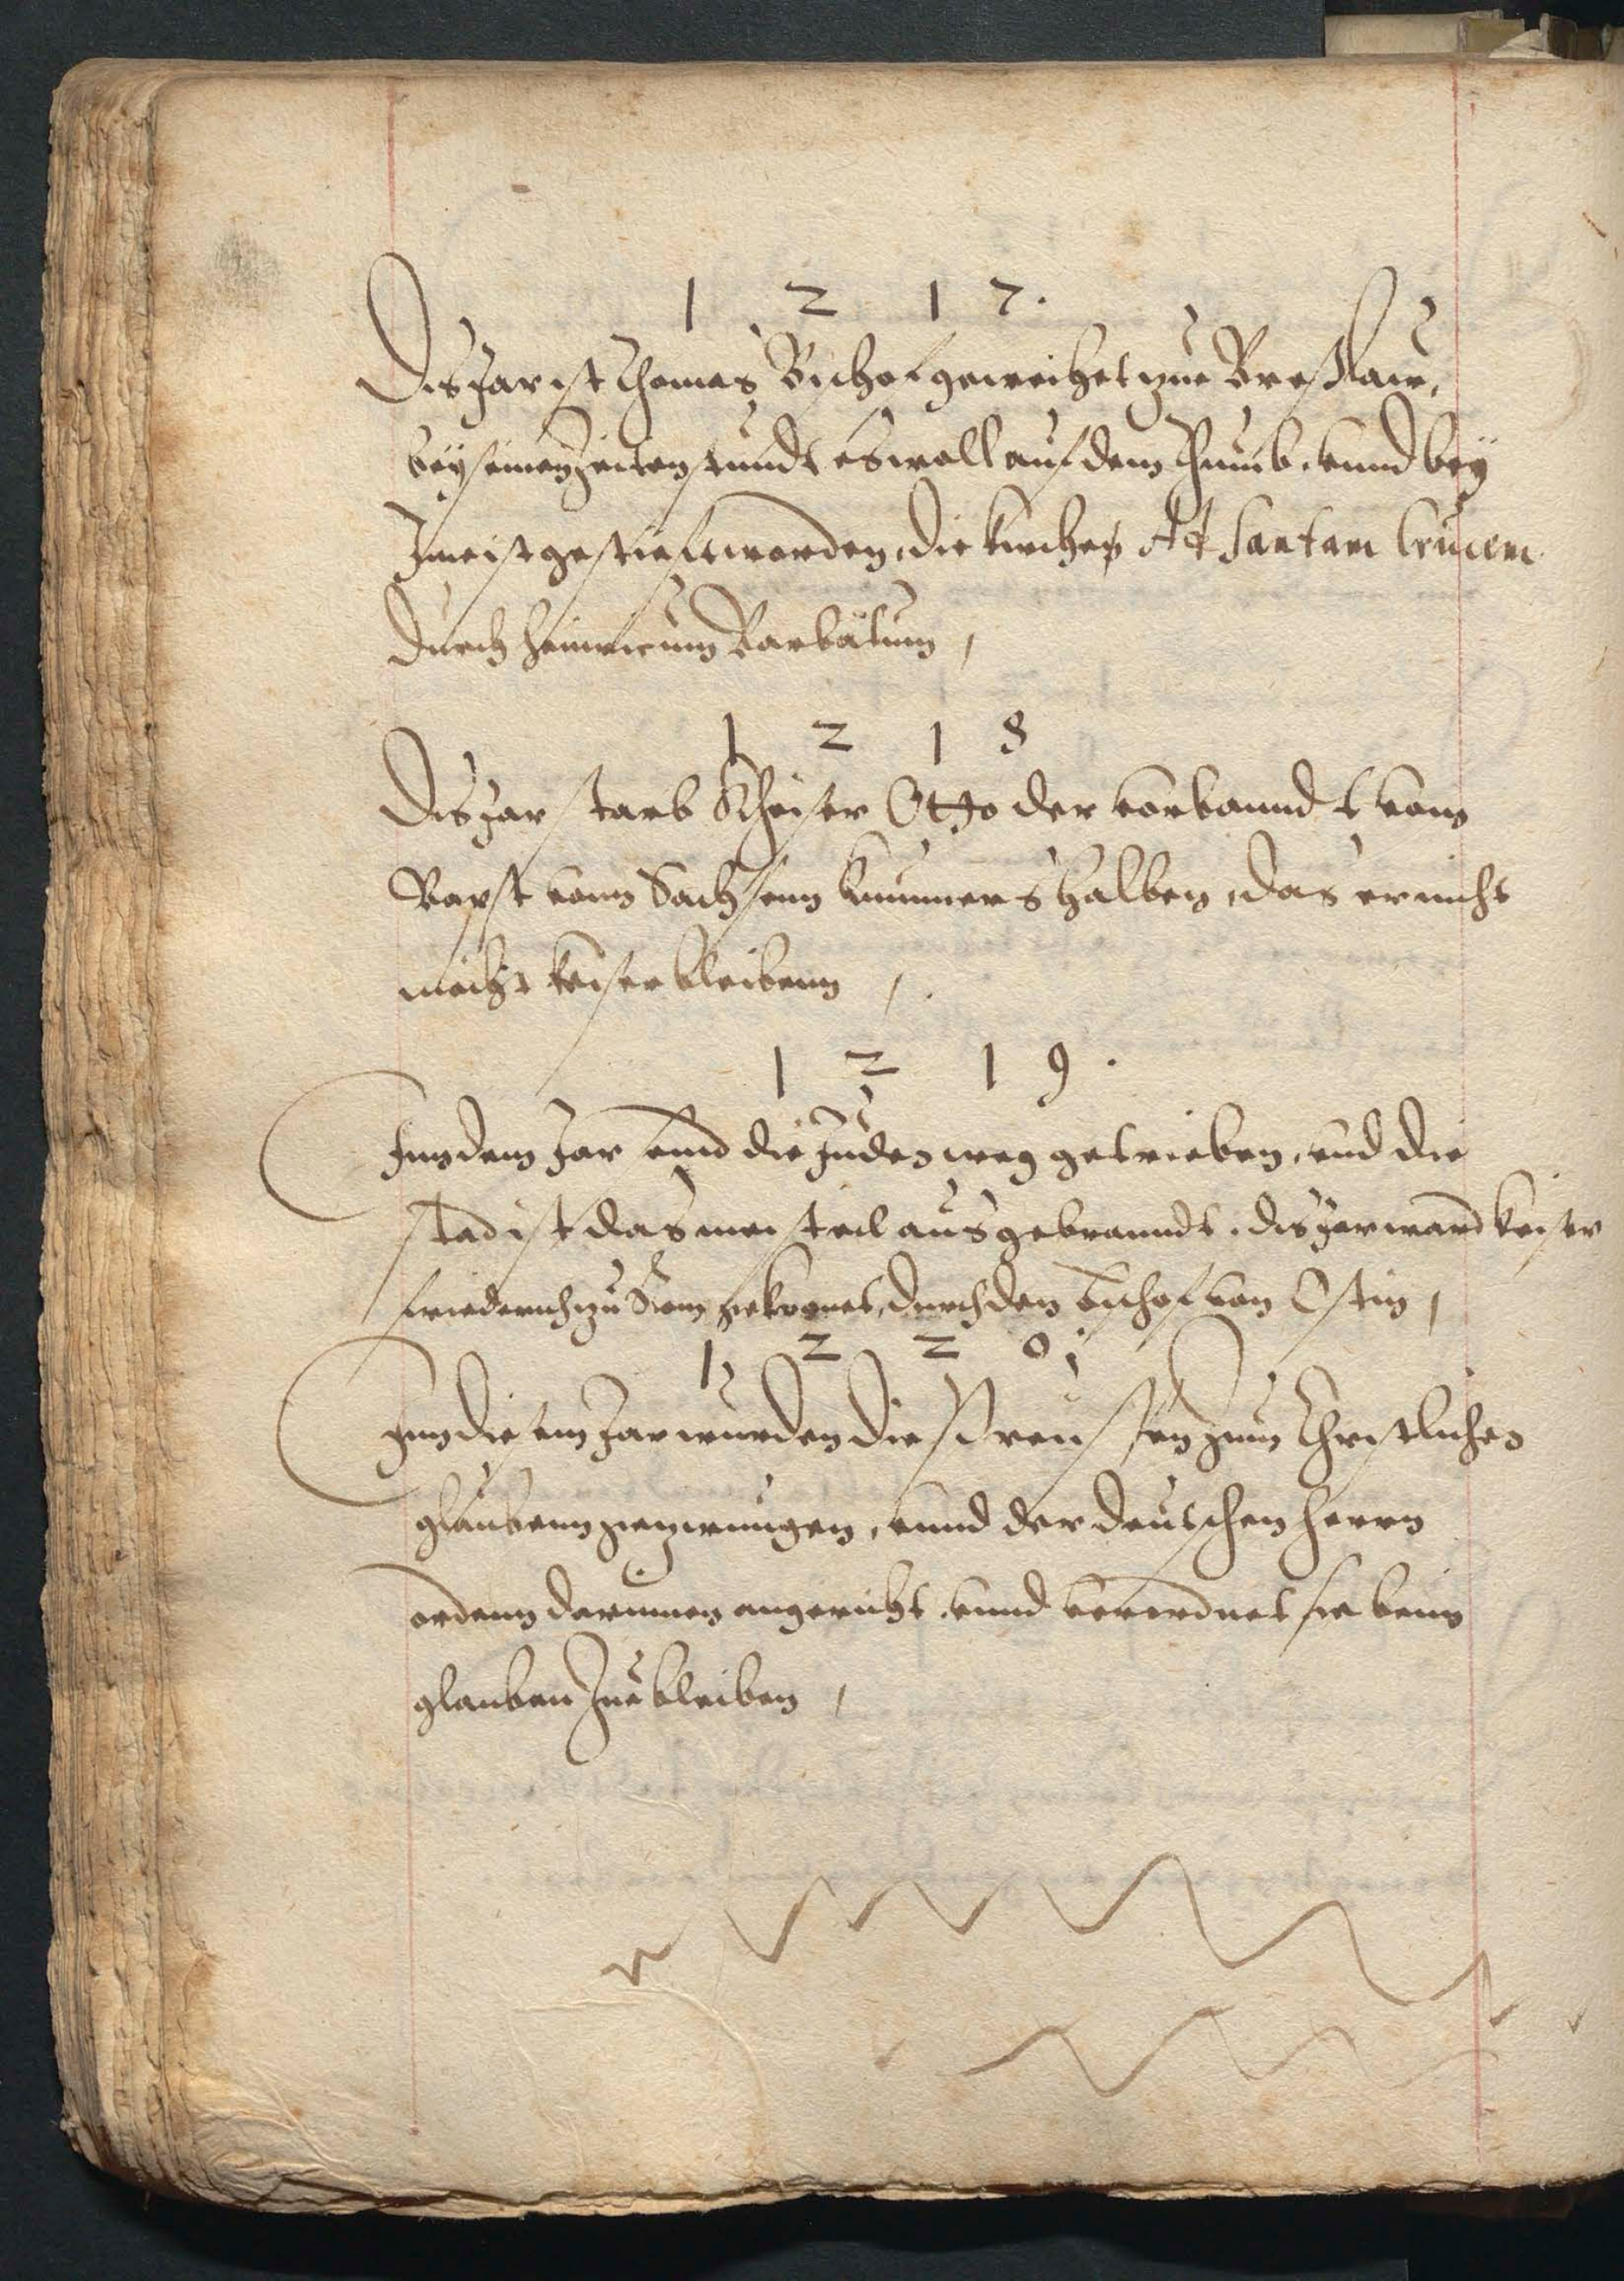 1 2 1 7.
Dis Jar ist Thomas Bischof geweihet zue Breßlaw,
beÿ seinen Zeiten stundt es woll auf dem Thumb, vnnd beÿ
Ime ist gestieft worden, die Kirchen Ad Santam Crucem
durch Heinricum Barbatum,
1 2 1 8
Dis Jar starb Kheiser Otto der vorbanndt vom
Bapst vonn Sachsenn kummers halben, das er nicht
mocht keiser bleibenn,
1 2 1 9.
Inn dem Jar sind die Juden weg getrieben, vnd die
stad ist das meisteil ausgebranndt. dis Jar ward keiser
friederich zu Rom gekronet, durch den Bischof von Ostin,
1 2 2 0
Inn diesem Jar wurden die Preussen zum Christlichen
glaubenn gezwungen, vnnd der deutschen herrn
ordenn darinnen angericht, vnnd verordnet sie beim
glauben Zue bleiben,